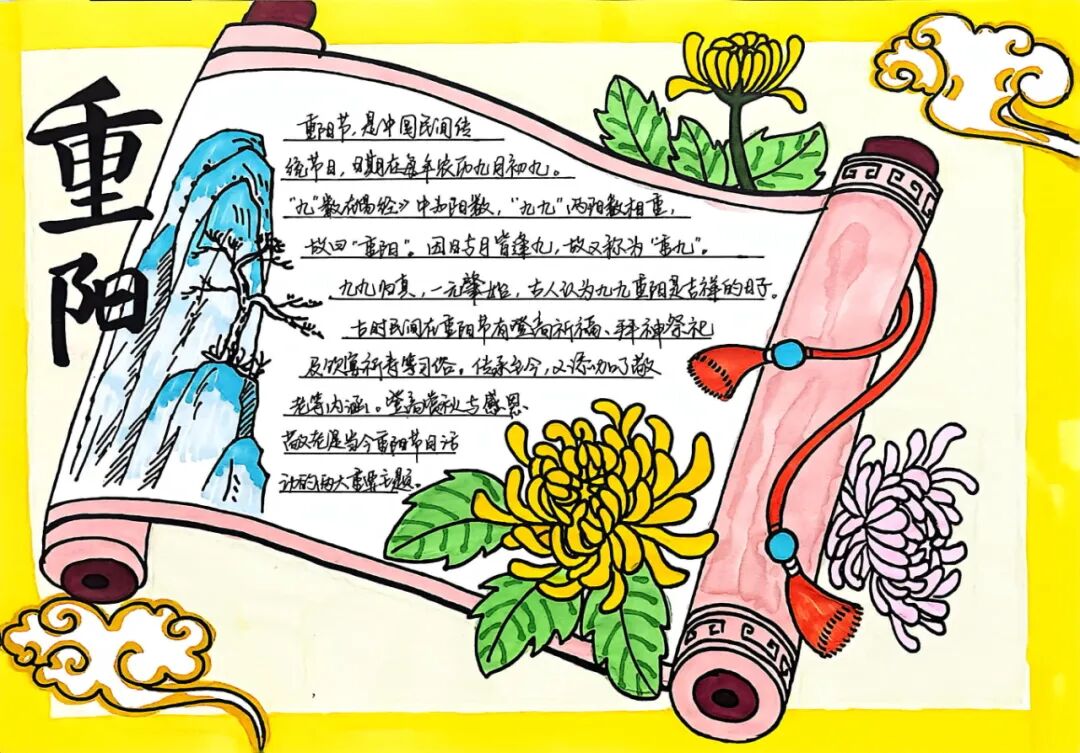 重阳
重阳节，是中国民间传
统节日，日期在每年农历九月初九。
"九"数在易经》中为阳数，"九九"两阳数相重，
故曰"重阳"。因日与月皆逢九，故又称为"重九"。
九九归真，一元肇始，古人认为九九重阳是吉祥的日子。
古时民间在重阳节有登高祈福、拜神祭祀
及饮宴祈寿等习俗。传承至今，又添加了敬
老等内涵。登高赏秋与感恩
敬老是当今重阳节日活
动的两大重要主题。